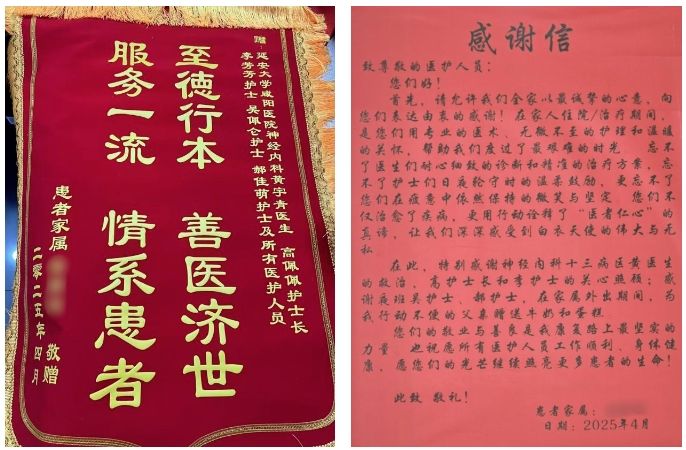 赠：延安大学咸阳医院神经内科黄宇青医生 高佩佩护士长
李芳芳护士 吴佩仑护士 郝佳萌护士及所有医护人员
至德行本 善医济世
服务一流 情系患者
患者家属
敬赠
二零二五年四月
感谢信
致尊敬的医护人员：
您们好！
首先，请允许我们全家以最诚挚的心意，向
您们表达由衷的感谢！在家人住院/治疗期间，
是您们用专业的医术、无微不至的护理和温暖
的关怀，帮助我们度过了最艰难的时光 忘不
了医生们耐心细致的诊断和精准的治疗方案，忘
不了护士们日夜轮守时的温柔鼓励，更忘不了您
们在疲惫中依然保持的微笑与坚定 您们不
仅治愈了疾病，更用行动诠释了“医者仁心”的
真谛，让我们深深感受到白衣天使的伟大与无
私
在此，特别感谢神经内科十三病区黄医生
的救治，高护士长和李护士的关心照顾；感
谢夜班吴护士、郝护士，在家属外出期间，为
我行动不便的父亲赠送牛奶和蛋糕
您们的敬业与善良是我康复路上最坚实的
力量 也祝愿所有医护人员工作顺利、身体健
康，愿您们的光芒继续照亮更多患者的生命！
此致 敬礼！
患者家属：
日期：2025年4月